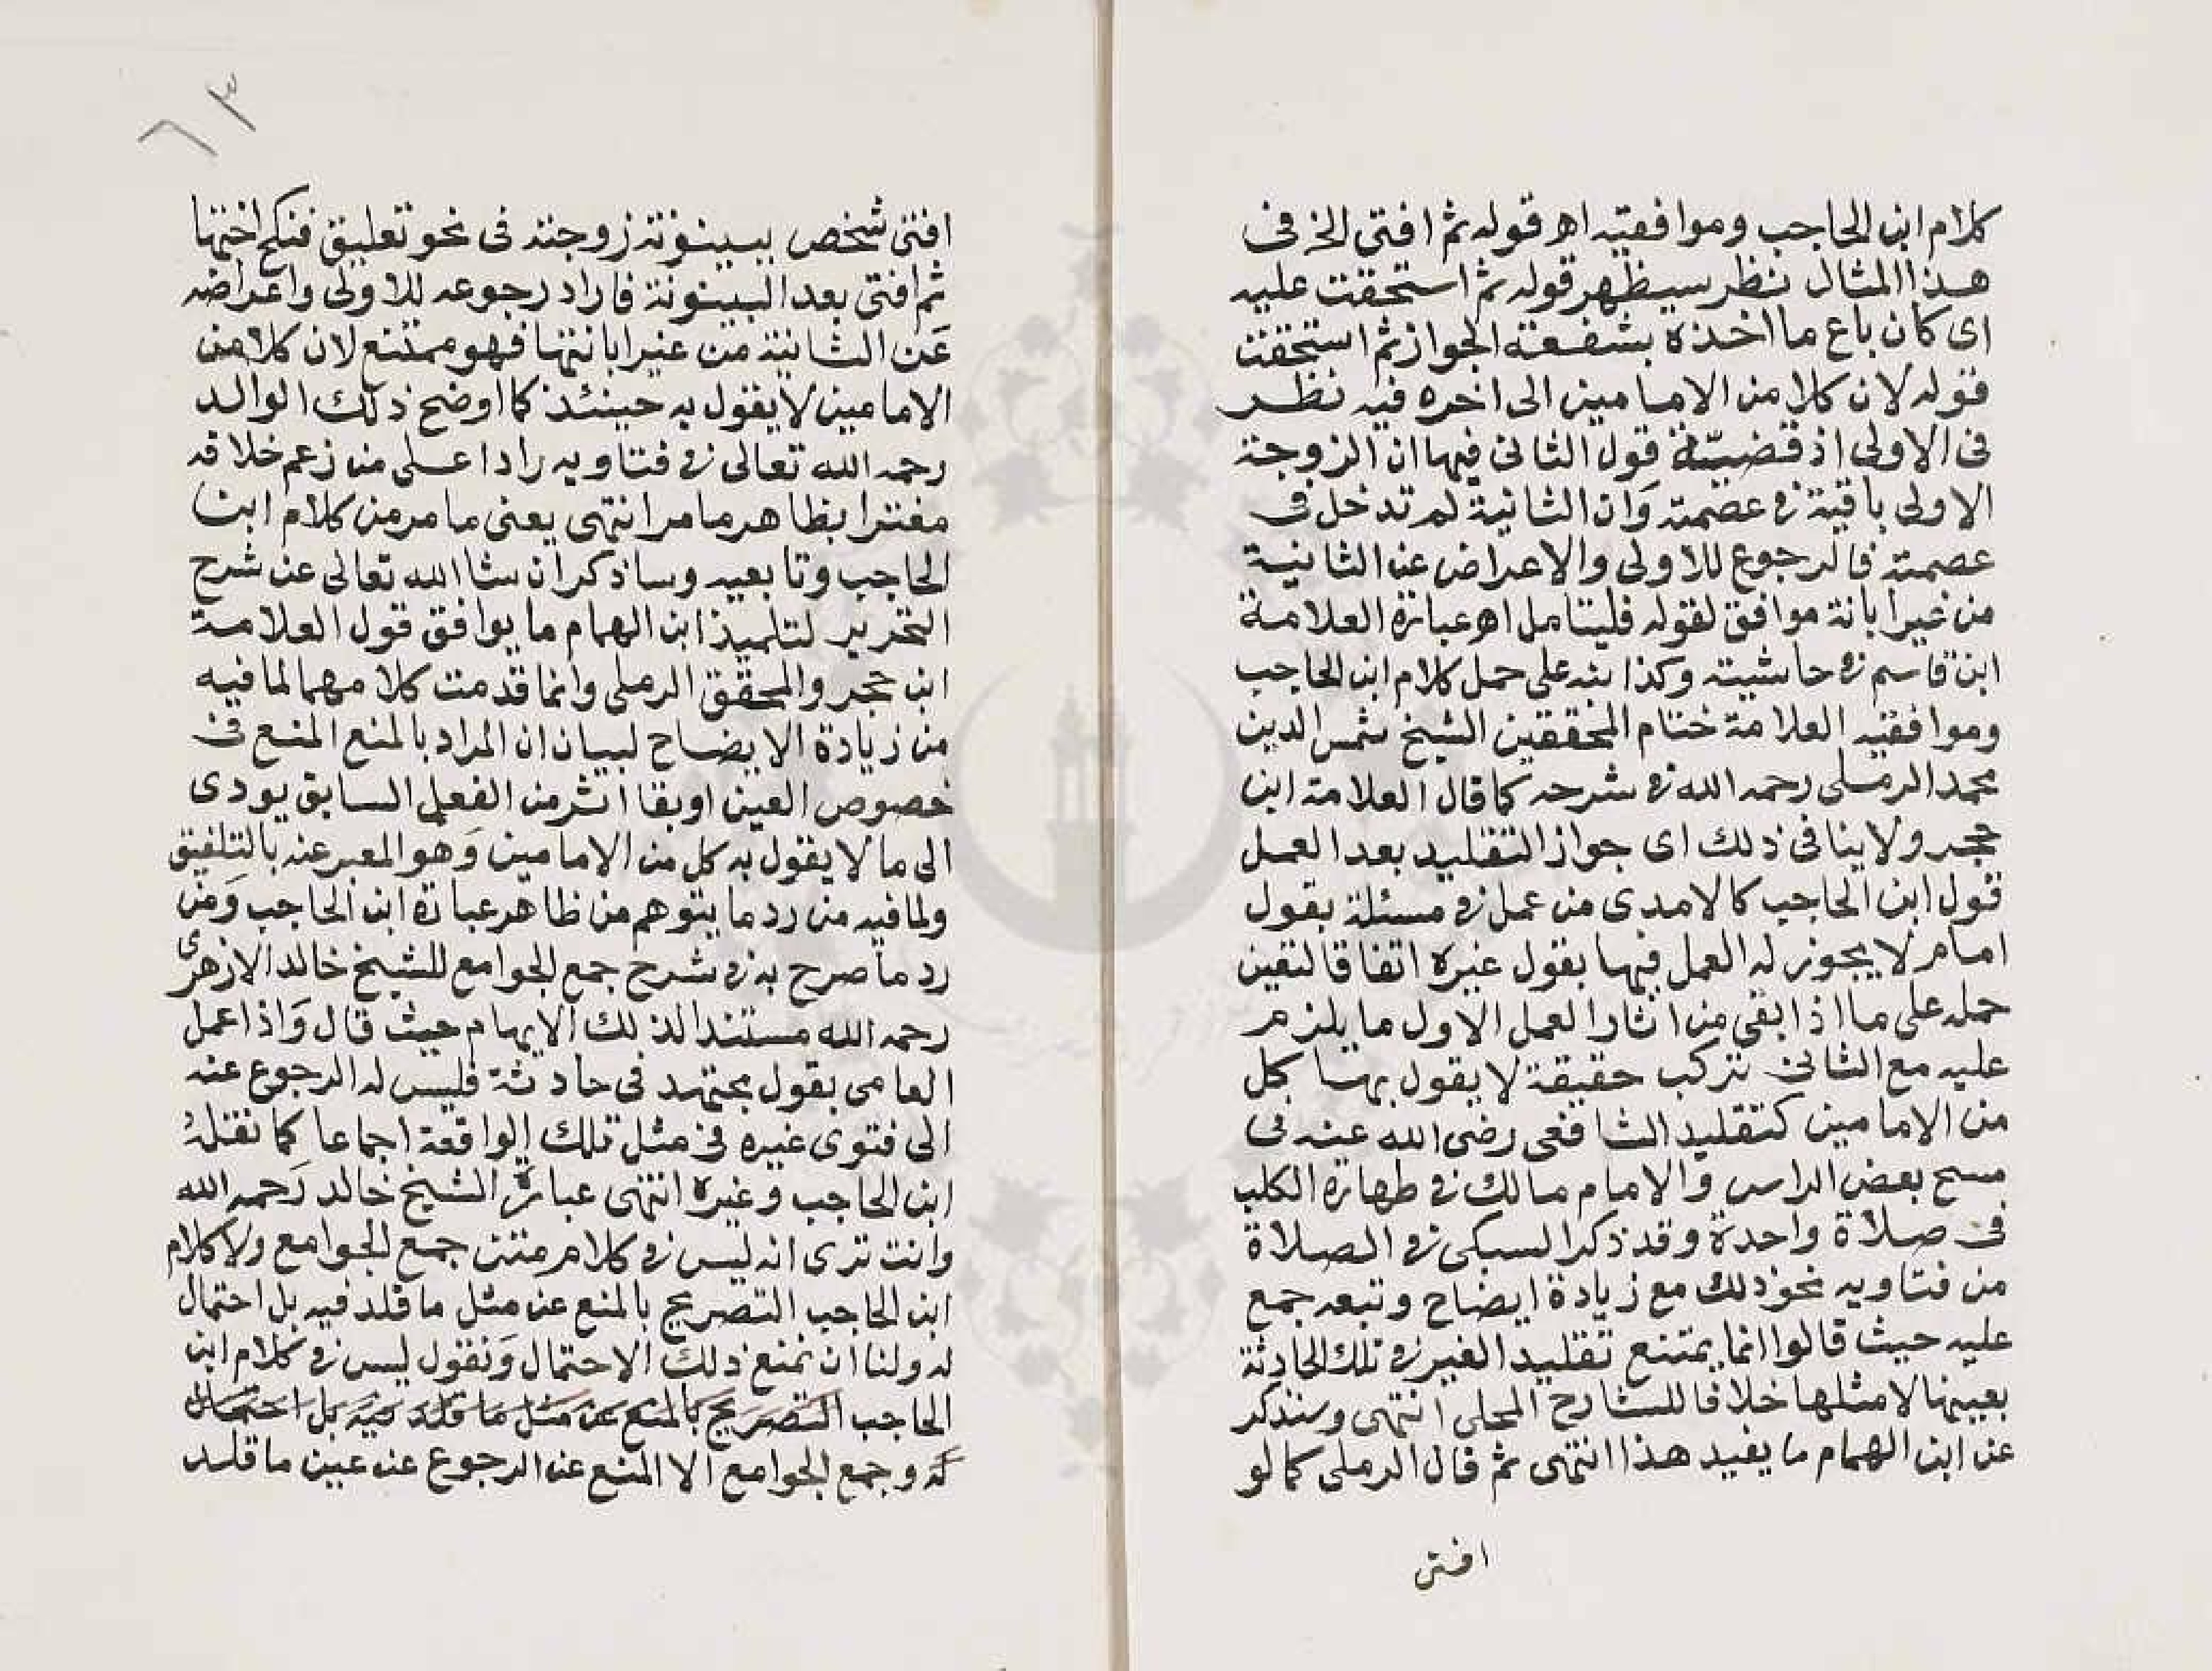 كلام ابن الحاجب وموافقيه اهـ قوله ثم افتى الخ فى
هذا المثال نظر سيظهر قوله ثم استحقت عليه
اى كان باع ما اخذه بشفعة الجواز ثم استحقت
قوله لان كلا من الامامين الى اخره فيه نظر
فى الاولى اذ قضيّة قول الثانى فيها ان الزوجة
الاولى باقية فى عصمته وان الثانية لم تدخل فى
عصمته فالرجوع للاولى والاعراض عن الثانية
من غير ابانة موافق لقوله فليتامل اهـ عبارة العلامة
ابن قاسم فى حاشيته وكذا نبه على حمل كلام ابن الحاجب
وموافقيه العلامة ختام المحققين الشيخ شمس الدين
محمد الرملى رحمه الله فى شرحه كما قال العلامة ابن
حجر ولا ينافى ذلك اى جواز التقليد بعد العمل
قول ابن الحاجب كالامدى من عمل فى مسئلة بقول
امام لا يجوز له العمل فيها بقول غيره اتفاقا لتعين
حمله على ما اذا بقى من اثار العمل الاول ما يلزم
عليه مع الثانى تركب حقيقة لا يقول بها كل
من الامامين كتقليد الشافعى رضى الله عنه فى
مسح بعض الراس والامام مالك فى طهارة الكلب
فى صلاة واحدة وقد ذكر السبكى فى الصلاة
من فتاويه نحو ذلك مع زيادة ايضاح وتبعه جمع
عليه حيث قالوا انما يمتنع تقليد الغير فى تلك الحادثة
بعينها لا مثلها خلافا للشارح المحلى انتهى وسنذكر
عن ابن الهمام ما يفيد هذا انتهى ثم قال الرملى كما لو
افتى
٦٣
افتى شخص ببينونة زوجته فى نحو تعليق فنكح اختها
ثم افتى بعد البينونة فاراد رجوعه للاولى واعراضه
عَن الثانية من غير ابانتها فهو ممتنع لان كلا من
الامامين لا يقول به حينئذ كما اوضح ذلك الوالد
رحمه الله تعالى فى فتاويه رادا على من زعم خلافه
مغترا بظاهر ما مر انتهى يعنى ما مر من كلام ابن
الحاجب وتابعيه وساذكر ان شا الله تعالى عن شرح
التحرير لتلميذ ابن الهمام ما يوافق قول العلامة
ابن حجر والمحقق الرملى وانما قدمت كلامهما لما فيه
من زيادة الايضاح لبيان ان المراد بالمنع المنع فى
خصوص العين او بقا اثر من الفعل السابق يودى
الى ما لا يقول به كل من الامامين وَهو المعبر عنه بالتلفيق
ولما فيه من رد ما يتوهم من ظاهر عبارة ابن الحاجب وَمن
رد ما صرح به فى شرح جمع الجوامع للشيخ خالد الازهرى
رحمه الله مستندا لذلك الايهام حيث قال وَاذا عمل
العامى بقول مجتهد فى حادثة فليس له الرجوع عنه
الى فتوى غيره فى مثل تلك الواقعة اجماعا كما نقلهُ
ابن الحاجب وغيره انتهى عبارة الشيخ خالد رَحمه الله
وانت ترى انه ليس فى كلام متن جمع الجوامع ولا كلام
ابن الحاجب التصريح بالمنع عن مثل ما قلد فيه بل احتمال
له ولنا ان نمنع ذلك الاحتمال وَنقول ليس فى كلام ابن
الحاجب التصريح بالمنع عن مثل ما قلد فيه بل احتمال
له وجمع الجوامع الا المنع عن الرجوع عن عين ما قلد